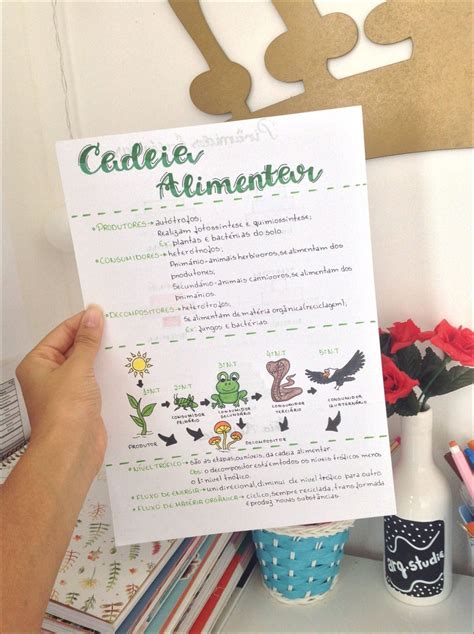 Cadeia
Alimentar
* PRODUTORES → autótrofos;
Realizam fotossíntese e quimiossíntese;
Ex: plantas e bactérias do solo.
* CONSUMIDORES → heterótrofos;
Primário-animais herbívoros, se alimentam dos
produtores;
Secundário-animais carnívoros, se alimentam dos
primários.
* DECOMPOSITORES → heterótrofos;
Se alimentam de matéria orgânica (reciclagem);
Ex: fungos e bactérias.
1º N.T
2º N.T
3º N.T
4º N.T
5º N.T
PRODUTOR
CONSUMIDOR PRIMÁRIO
CONSUMIDOR SECUNDÁRIO
CONSUMIDOR TERCIÁRIO
CONSUMIDOR QUATERNÁRIO
DECOMPOSITOR
* NÍVEL TRÓFICO → são as etapas, ou níveis, da cadeia alimentar.
Obs: o decompositor está em todos os níveis tróficos menos
o 1º nível trófico.
* FLUXO DE ENERGIA → unidirecional, diminui de nível trófico para outro.
* FLUXO DE MATÉRIA ORGÂNICA → cíclico, sempre reciclada, transformada
e produz novas substâncias.
arq.studie